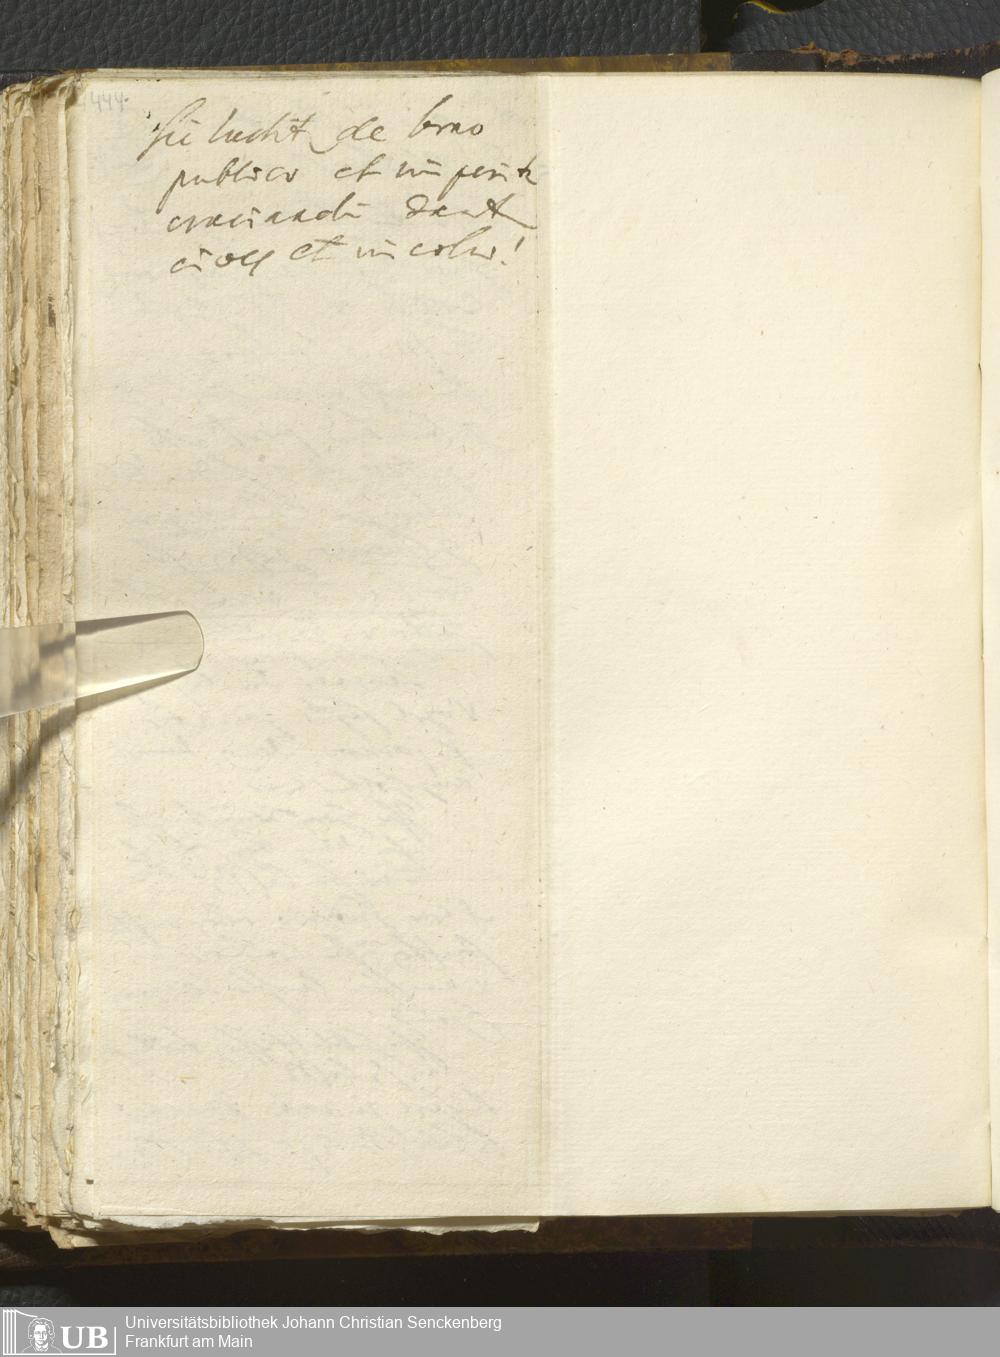 444.
Sic ludit de bono
publico et imperite
cruciandi dant
cives et incolae!
UB
Universitätsbibliothek Johann Christian Senckenberg
Frankfurt am Main